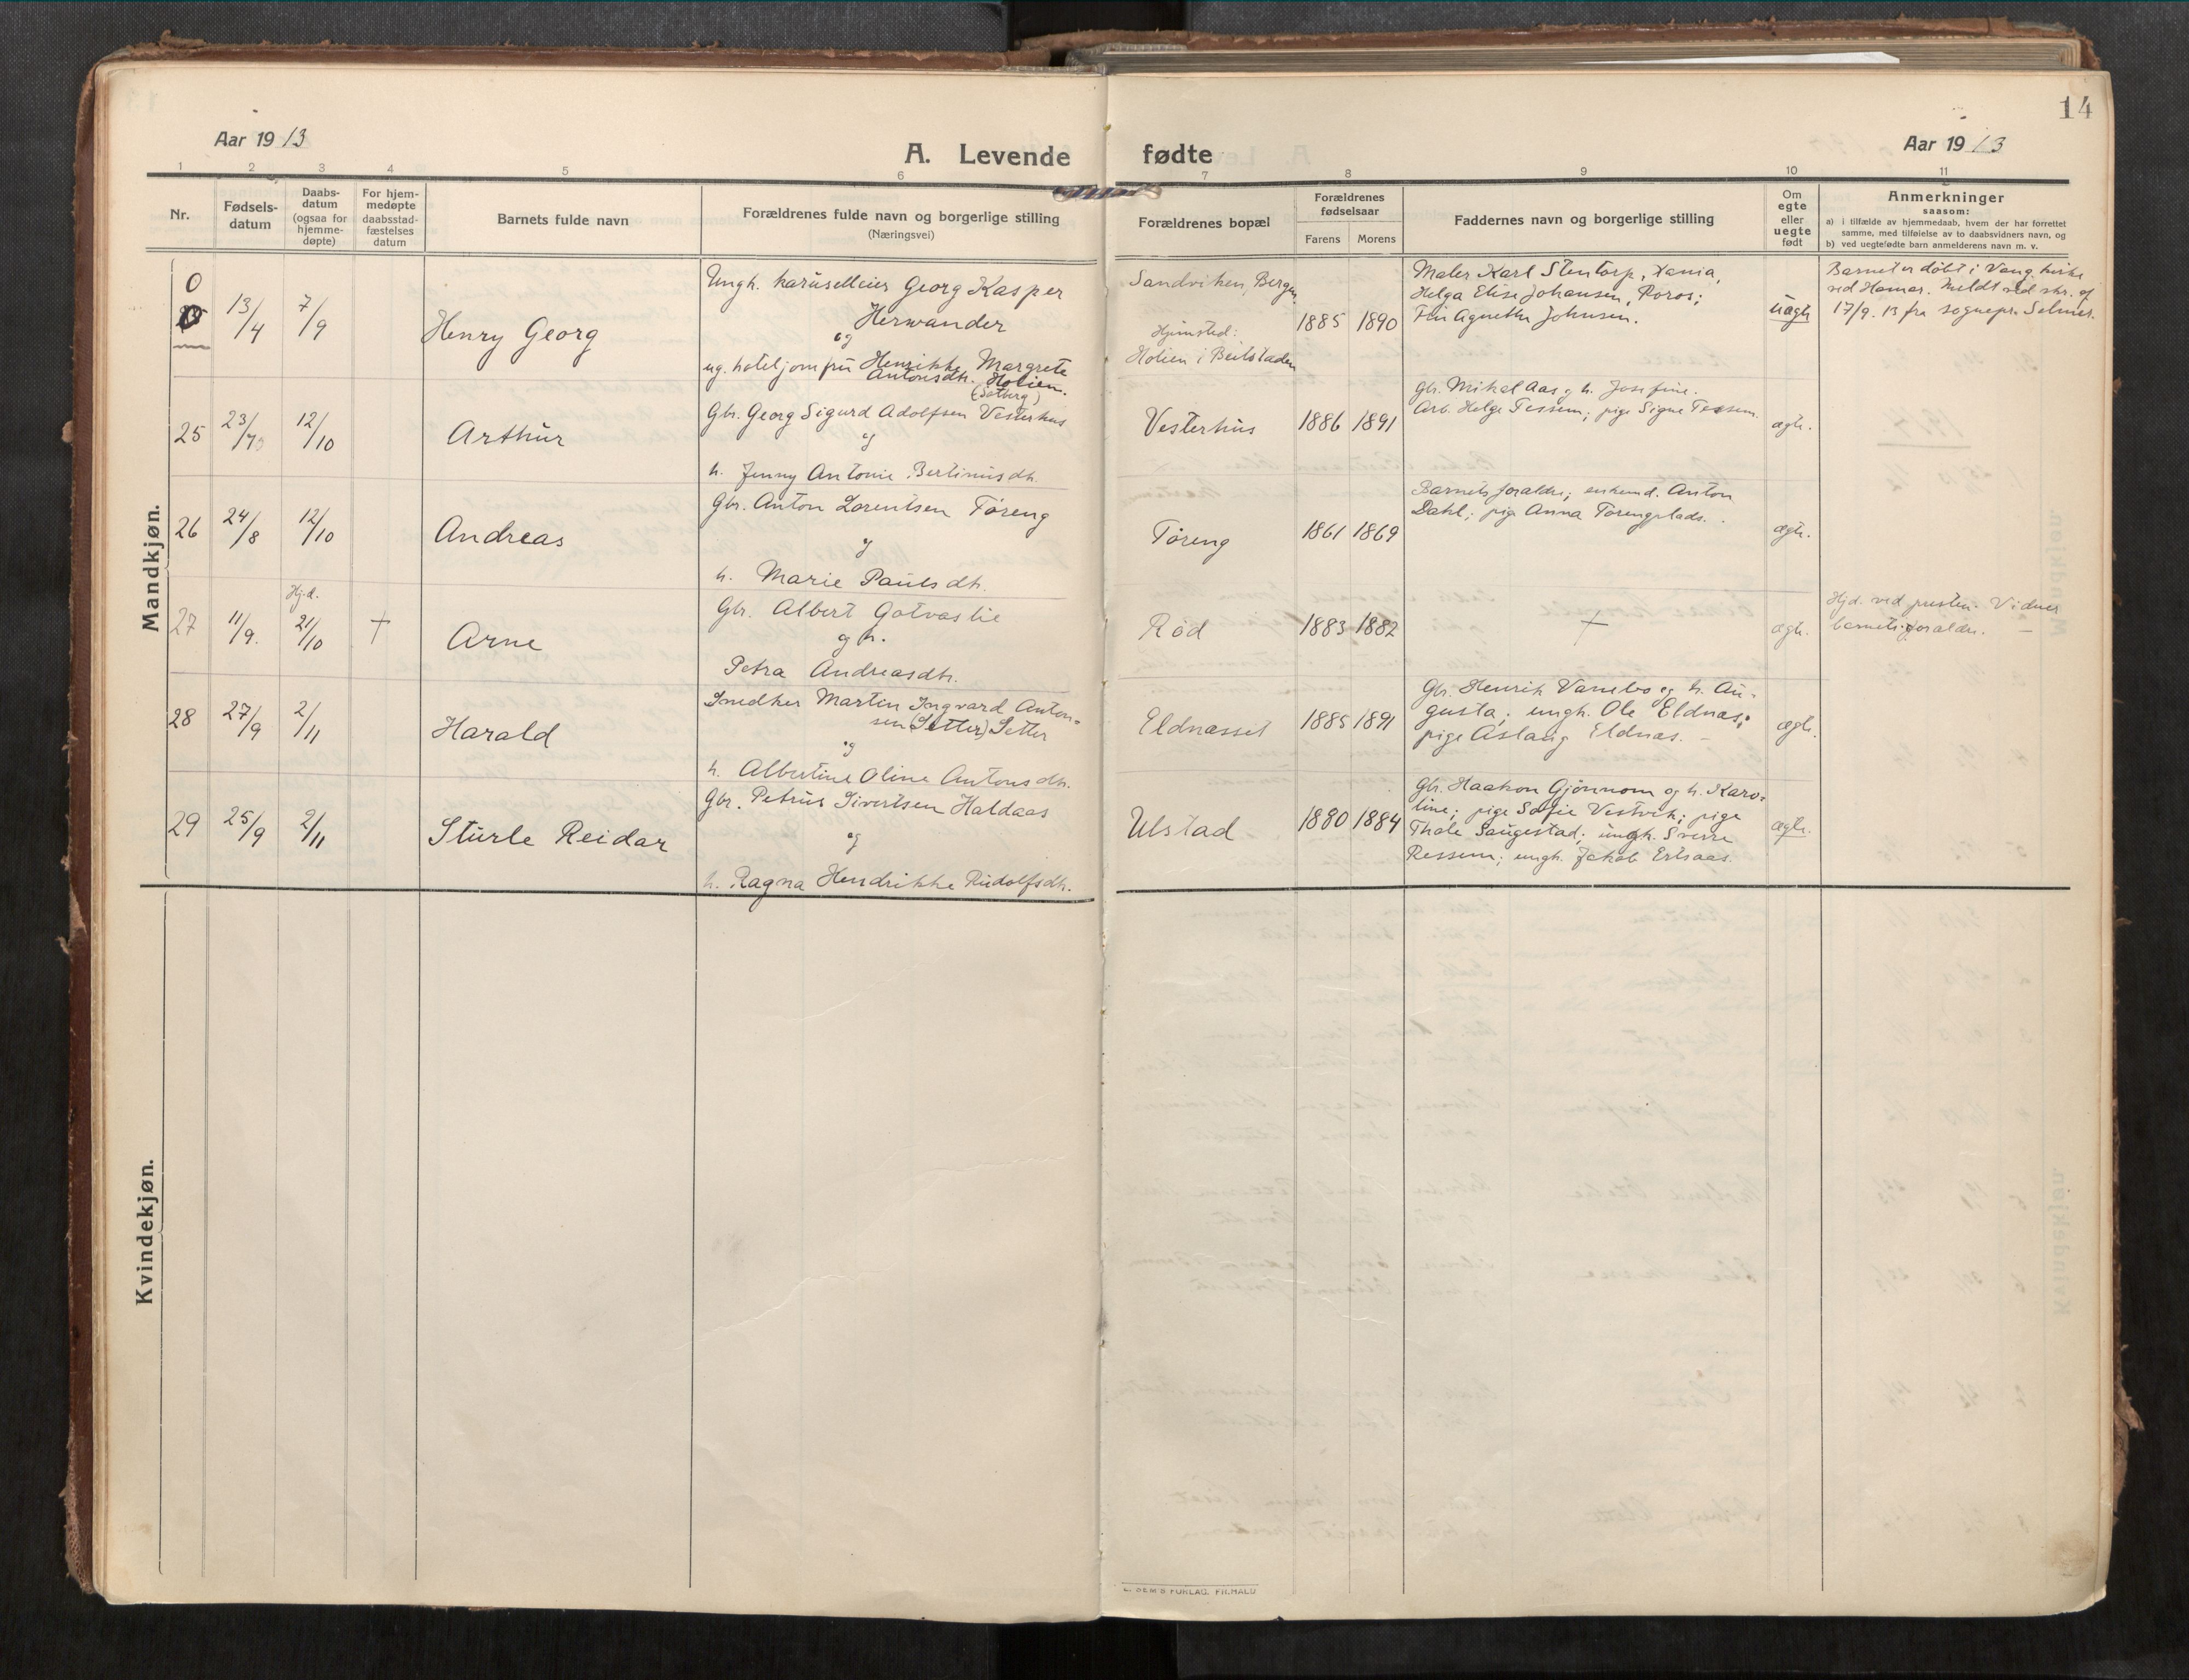 14
Aar 1913
A. Levende fødte
Aar 1913
1 2 3 4 5 6 7 8 9 10 11
Nr.
Fødsels-
datum
Daabs-
datum
(ogsaa for
hjemme-
døpte)
For hjem-
medøpte
daabsstad-
fæstelses
datum
Barnets fulde navn
Forældrenes fulde navn og borgerlige stilling
(Næringsvei)
Forældrenes bopæl
Forældrenes
fødselsaar
Farens Morens
Faddernes navn og borgerlige stilling
Om
egte
eller
uegte
født
Anmerkninger
saasom:
a) i tilfælde av hjemmedaab, hvem der har forrettet
samme, med tilføielse av to daabsvidners navn, og
b) ved uegtefødte barn anmelderens navn m. v.
Mandkjøn.
0
13/4
7/9
Henry Georg
Ungk. karuselleier Georg Kasper
Herwander
og
ug. hoteljomfru Henrikke Margrete
Antonsdtr. Holien.
Sandviken, Bergen.
Hjemsted:
Holien i Beitstaden
1885 1890
Maler Karl Stentorp, Xania,
Helga Elise Johansen, Røros;
Agnethe Johnsen.
uægte
Barnet er døbt i Vang kirke
ved Hamar. Meldt ved skr. af
17/9. 13 fra sognepr. Selmer.
25
23/
12/10
Arthur
Gbr. Georg Sigurd Adolfsen Vesterhus
og
h. Jenny Antonie Bertinusdtr.
Vesterhus
1886 1891
Gbr. Mikal Aas og h. Josefine.
Arb. Helge Tessem; pige Signe Tessem.
ægte.
26
24/8
12/10
Andreas
Gbr. Anton Lorentsen Tøreng
og
h. Marie Paulsdtr.
Tøreng
1861 1869
Barnets forældre; enkemd. Anton
Dahl; pige Anna Tørengplads.
ægte.
27
11/9.
Hj.d.
21/10
†
Arne
Gbr. Albert Gotvaslie
og h.
Petra Andreasdtr.
Rød
1883 1882
†
ægte.
Hjd. ved presten. Vidner
barnets forældre. —
28
27/9
2/11
Harald
Snedker Martin Ingvard Anton-
sen (Setter) Setter
og
h. Albertine Oline Antonsdtr.
Eldnæsset
1885 1891
Gbr. Henrik Vanebo og h. Au-
gusta; ungk. Ole Eldnæs;
pige Aslaug Eldnæs. —
ægte.
29
25/9
2/11
Sturle Reidar
Gbr. Petrus Sivertsen Haldaas
og
h. Ragna Hendrikke Rudolfsdtr.
Ulstad
1880 1884
Gbr. Haakon Gjønnom og h. Karo-
line; pige Sofie Vestvik; pige
Thale Saugestad; ungk. Sverre
Ressem; ungk. Jakob Ertsaas.
ægte.
Kvindekjøn.
E. SEM'S FORLAG, FR.HALD